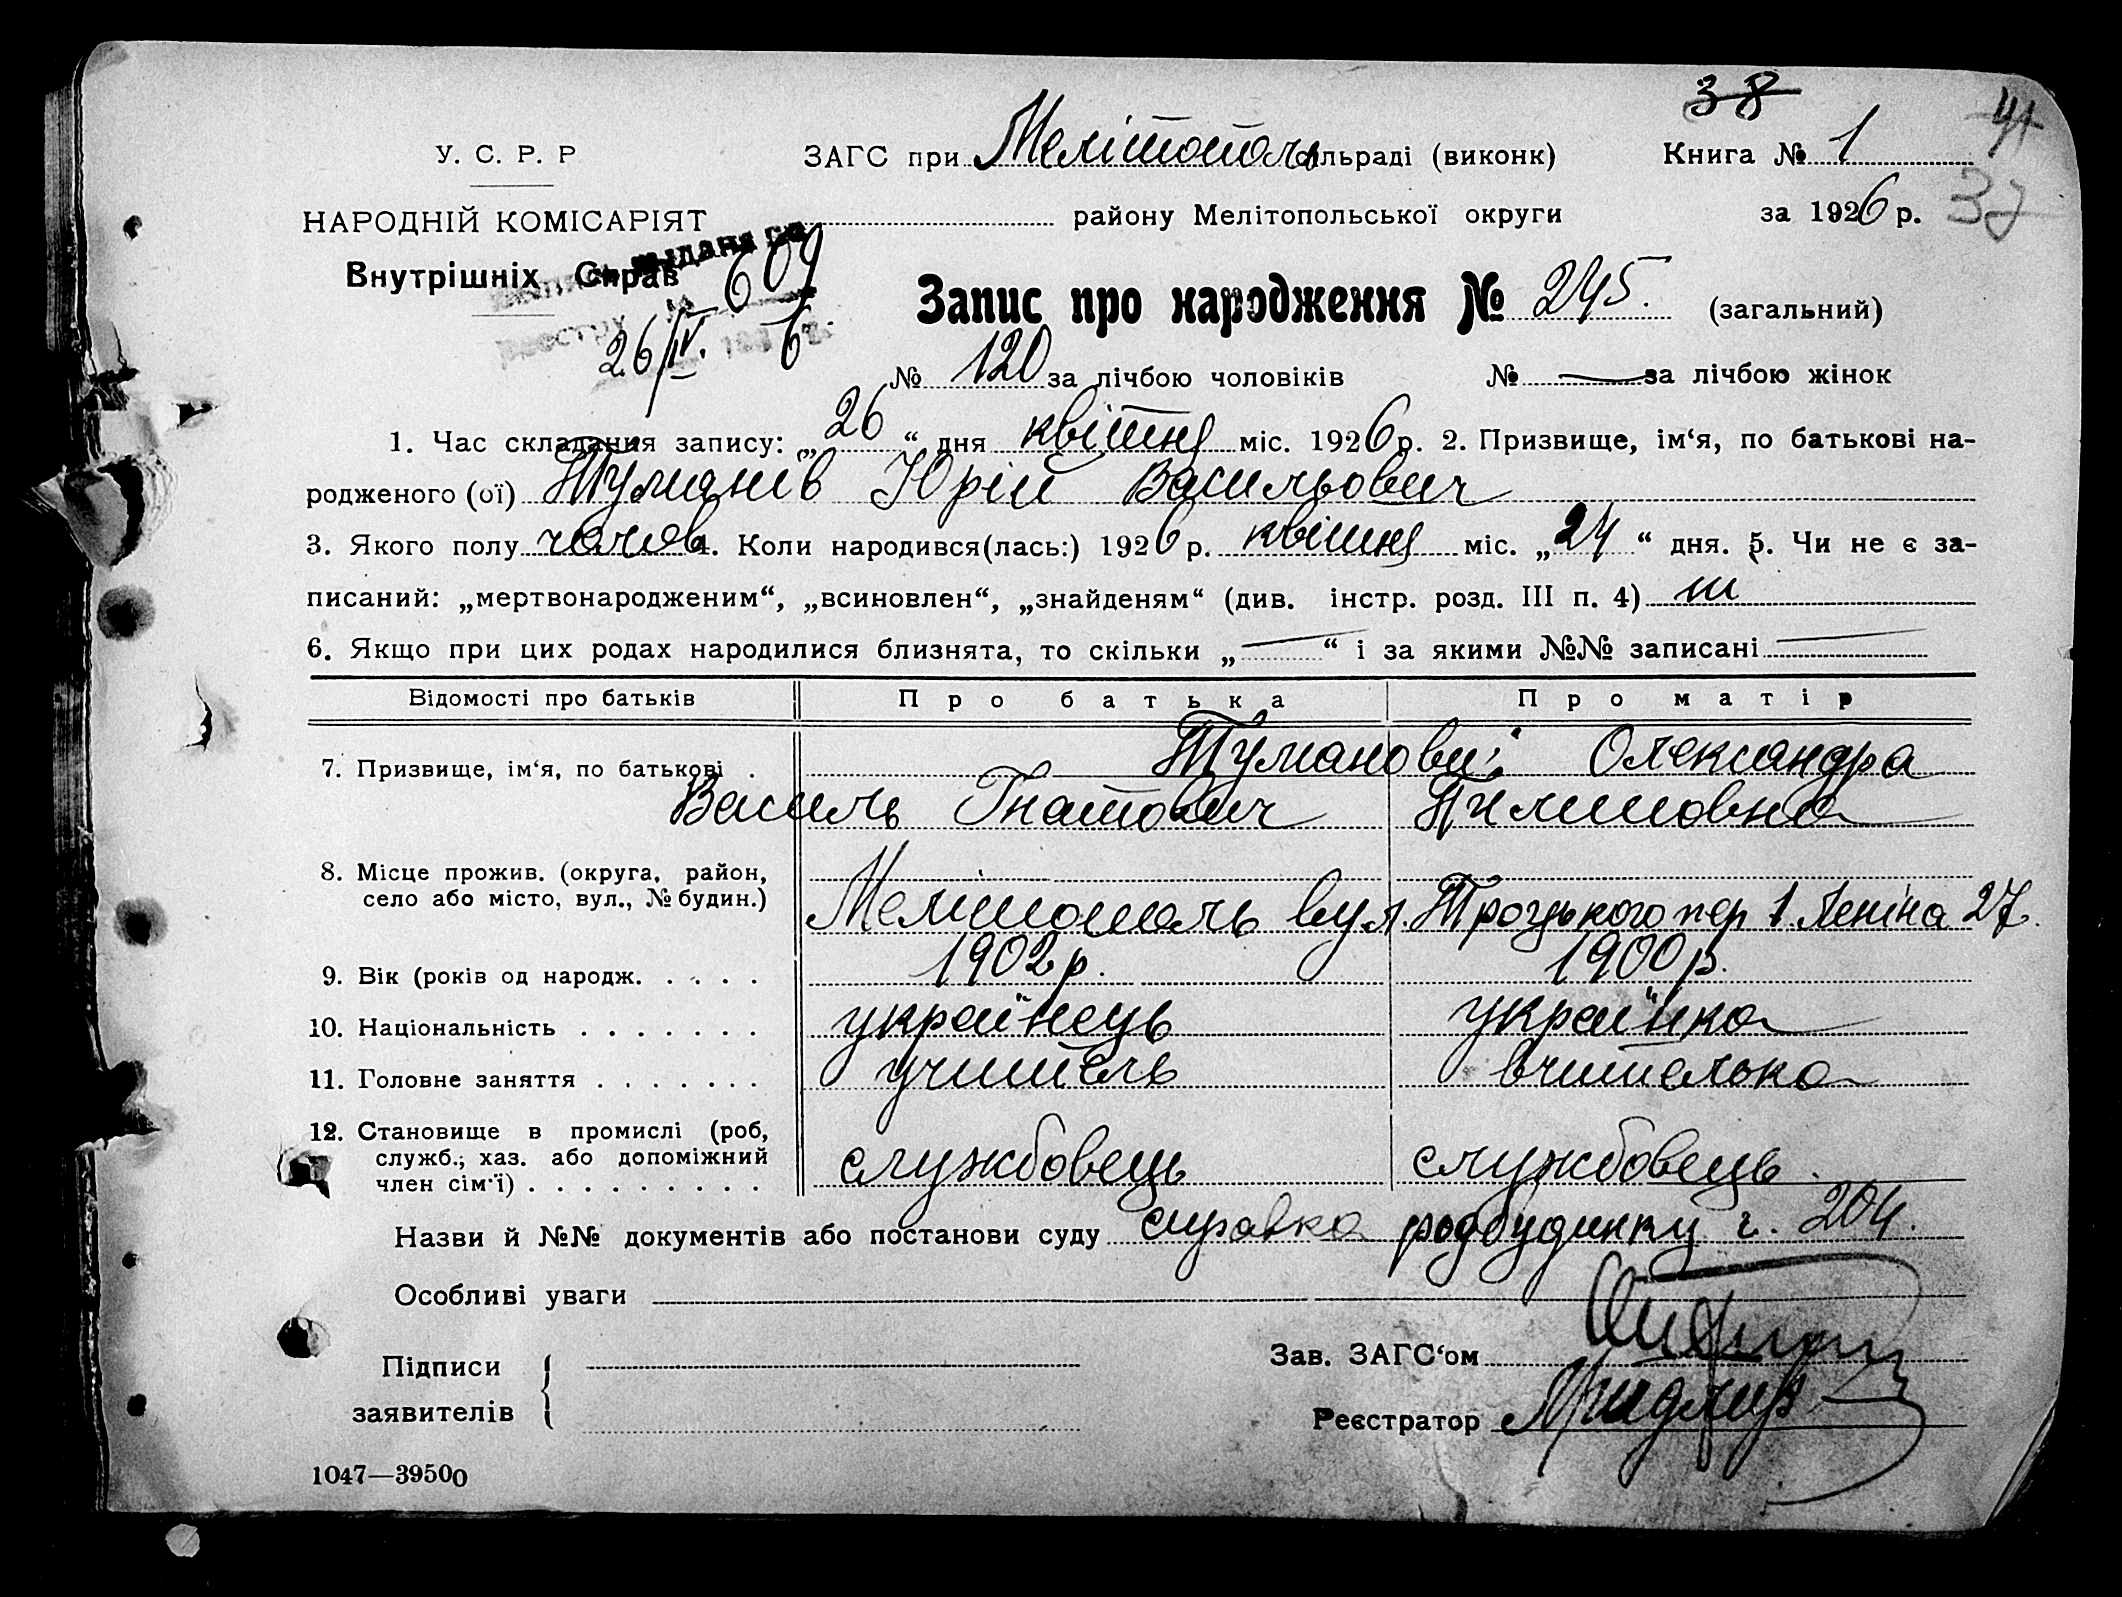 38
41
У. С. Р. Р
ЗАГС при Мелітополь сільраді (виконк)
Книга № 1
37
НАРОДНІЙ КОМІСАРІЯТ
району Мелітопольської округи
за 1926 р.
Внутрішніх Справ
видана
№ 609
Запис про народження № 245. (загальний)
26/IV. 6
№ 120 за лічбою чоловіків № — за лічбою жінок
1. Час складання запису: „26“ дня квітня міс. 1926 р. 2. Призвище, ім‘я, по батькові на-
родженого (ої) Туманів Юрій Васильович
3. Якого полу чолов 4. Коли народився(лась:) 1926 р. квітня міс. „24“ дня. 5. Чи не є за-
писаний: „мертвонародженим“, „всиновлен“, „знайденям“ (див. інстр. розд. III п. 4) ні
6. Якщо при цих родах народилися близнята, то скільки „—“ і за якими №№ записані —
Відомості про батьків Про батька Про матір
7. Призвище, ім‘я, по батькові . Туманови: Олександра
Василь Гнатович Пилиповна
8. Місце прожив. (округа, район,
село або місто, вул., № будин.) Мелітополь вул. Троцького пер 1. Леніна 27.
9. Вік (років од народж. . . . . 1902 р. 1900 р.
10. Національність . . . . . . . українець українка
11. Головне заняття . . . . . . . учитель вчителька
12. Становище в промислі (роб,
служб.; хаз. або допоміжний
член сім‘ї) . . . . . . . . . службовець службовець.
Назви й №№ документів або постанови суду справка родбудинку ч. 204.
Особливі уваги
Підписи
Зав. ЗАГС‘ом
заявителів
Реєстратор
1047—39500